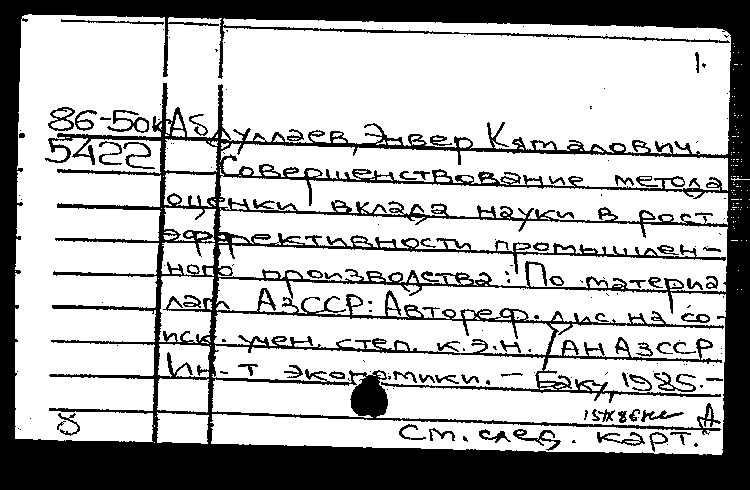 1.
86-50к Абдуллаев, Энвер Кямалович.
5422 Совершенствование метода
оценки вклада науки в рост
эффективности промышлен-
ного производства: По материа-
лам АзССР: Автореф. дис. на со-
иск. учен. степ. к.э.н. / АН АзССР
Ин-т экономики. – Баку, 1985. –
15IX86 А
8 См. след. карт.